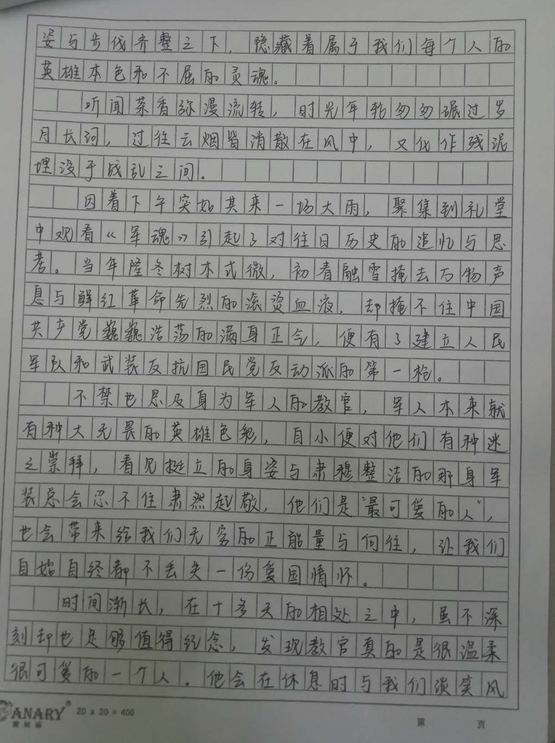 姿与步伐齐整之下，隐藏着属于我们每个人的
英雄本色和不屈的灵魂。
听闻茶香弥漫流转，时光年轮匆匆碾过岁
月长河，过往云烟皆消散在风中，又化作残泥
埋没于战乱之间。
因着下午突如其来一场大雨，聚集到礼堂
中观看《军魂》引起了对往日历史的追忆与思
考。当年隆冬树木式微，初春融雪掩去万物声
息与鲜红革命先烈的滚烫血液，却掩不住中国
共产党巍巍浩荡的满身正气，便有了建立人民
军队和武装反抗国民党反动派的第一枪。
不禁也思及身为军人的教官，军人本来就
有种大无畏的英雄色彩，自小便对他们有种迷
之崇拜，看见挺立的身姿与肃穆整洁的那身军
装总会忍不住肃然起敬，他们是"最可爱的人"，
也会带来给我们无穷的正能量与向往，让我们
自始自终都不丢失一份爱国情怀。
时间渐长，在十多天的相处之中，虽不深
刻却也足够值得纪念，发现教官真的是很温柔
很可爱的一个人。他会在休息时与我们谈笑风
ANARY 20×20=400
第 页